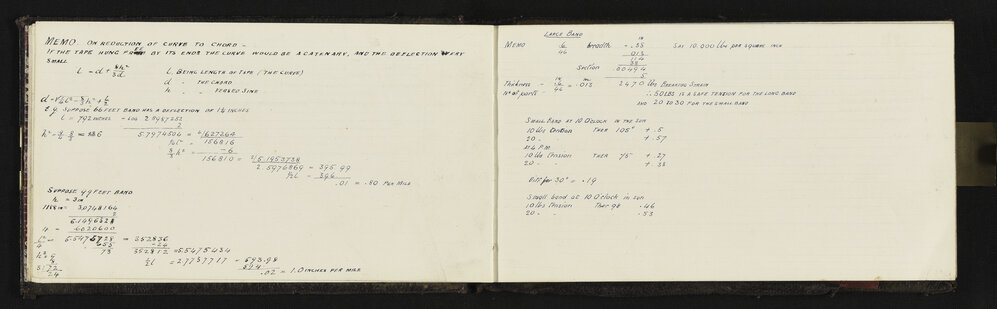 MEMO. ON REDUCTION OF CURVE TO CHORD -
IF THE TAPE HUNG FROM BY ITS ENDS THE CURVE WOULD BE A CATENARY, AND THE DEFLECTION VERY
SMALL
l = d + 8h²/3d
l, BEING LENGTH OF TAPE ("THE CURVE)
d - THE CHORD
h - VERSED SINE
E.g. SUPPOSE 66 FEET BAND HAS A DEFLECTION OF 1½ INCHES
l = 792 INCHES - LOG 2.8987252
2
5.7974504 = 627264
¼l² = 156816
8/3 h² = -6
156810 = 5.1953738
2.5976869 = 395.99
½l = 396
.01 = .80 PER MILE
SUPPOSE 99 FEET BAND
h = 3 in
1188 in = 3.0748164
2
6.1496328
4 = 6020600
5.5475728 = 352836
-24
352812 = 5.5475434
½l = 2.7737717 = 593.98
594
.02 = 1.0 INCHES PER MILE
LARGE BAND
MEMO
breadth - .38
SAY 10.000 lbs PER SQUARE INCH
.013
114
38
Section .00494
5
Thickness - = .013
2470 lbs BREAKING STRAIN
No of parts -
∴ 50 LBS IS A SAFE TENSION FOR THE LONG BAND
AND 20 TO 30 FOR THE SMALL BAND
SMALL BAND AT 10 O'CLOCK IN THE SUN
10 lbs tension THER 105° + .5
20 - + .57
At 4 P.M
10 lbs tension THER 75° + .27
20 - + .38
Diff for 30° = .19
Small band at 10 O'clock in sun
10 lbs tension Ther 98 .46
20 - .53